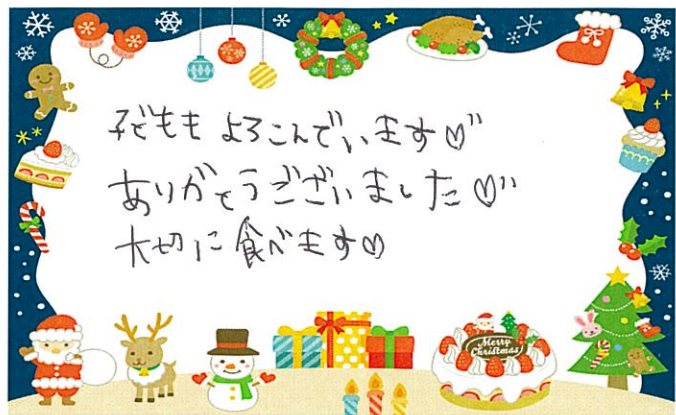 子どもも よろこんでいます♡"
ありがとうございました♡"
大切に食べます♡
Merry
Christmas!